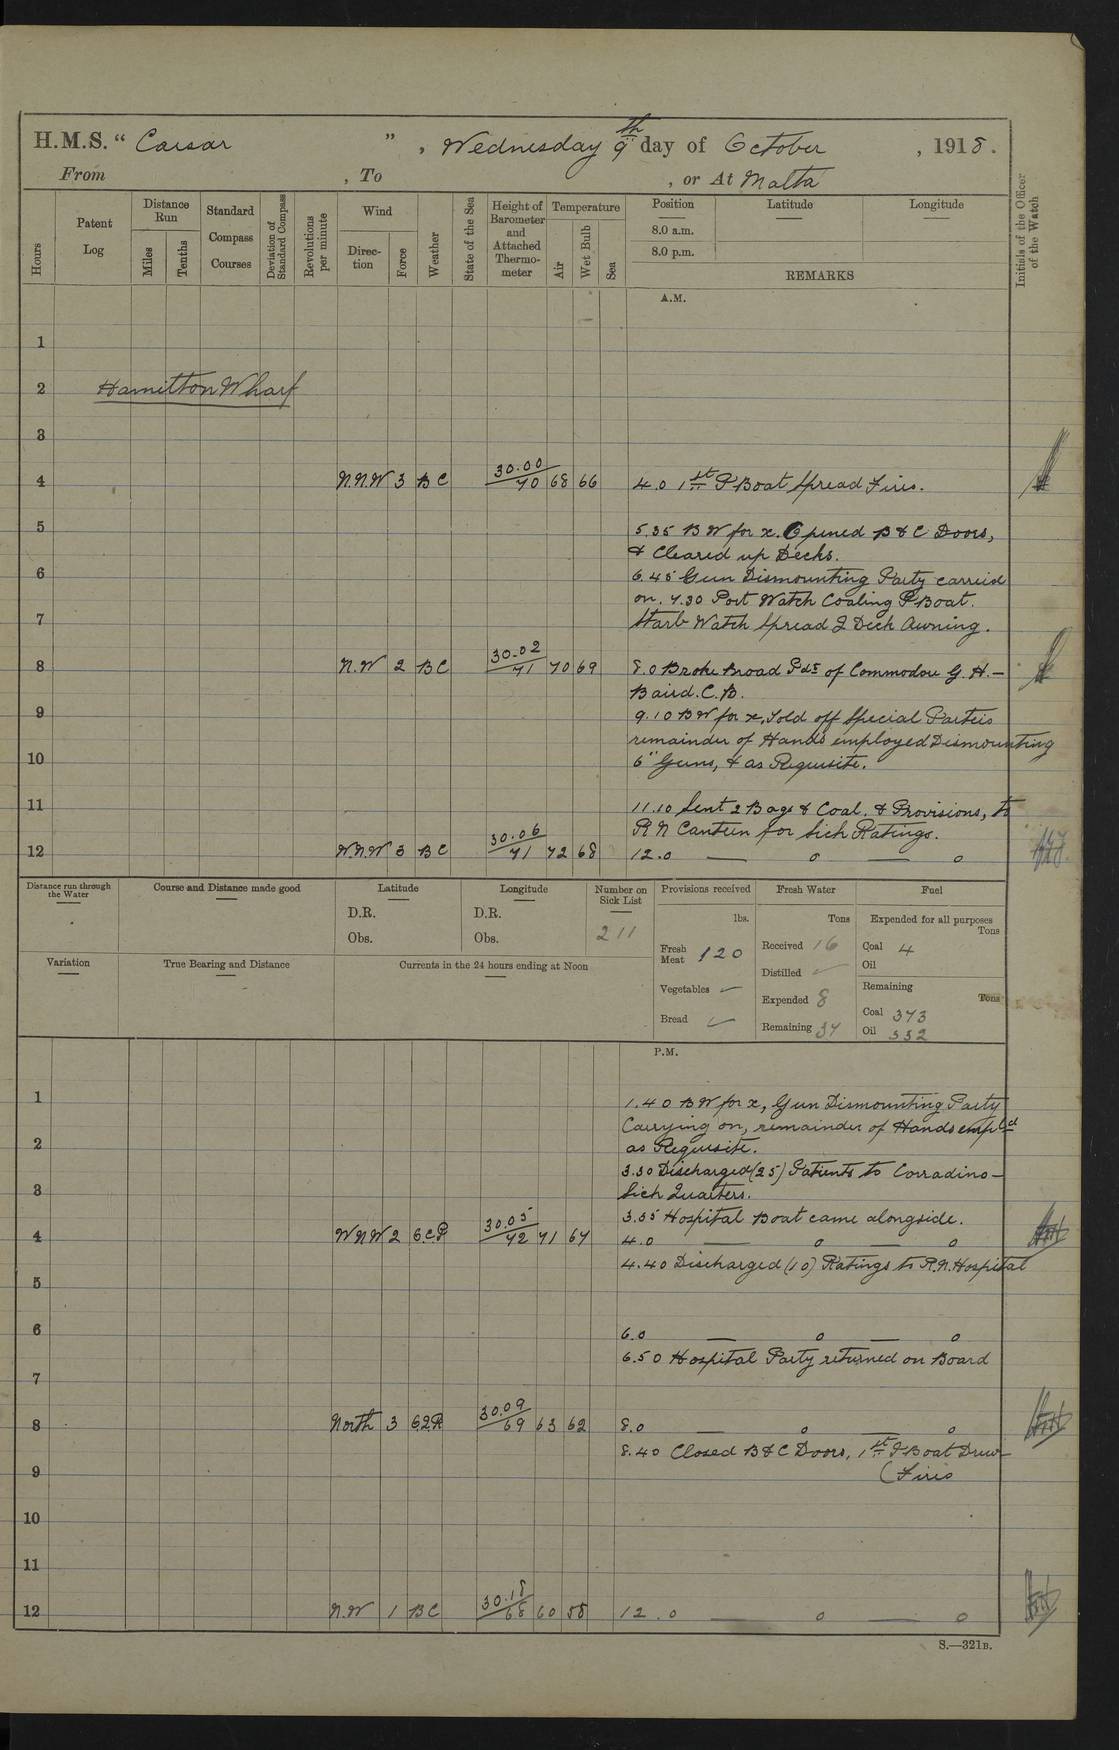 H.M.S. “ Caesar ” , Wednesday 9th day of October , 1918.
From , To , or At Malta
Hours
Patent Log
Distance Run
Miles
Tenths
Standard Compass Courses
Deviation of Standard Compass
Revolutions per minute
Wind
Direction
Force
Weather
State of the Sea
Height of Barometer and Attached Thermometer
Temperature
Air
Wet Bulb
Sea
Position
Latitude
Longitude
8.0 a.m.
8.0 p.m.
REMARKS
Initials of the Officer of the Watch
A.M.
1
2 Hamilton Wharf
3
4 N.N.W 3 B C 30.00/70 68 66 4.0 1st P Boat Spread Fires.
5 5.35 B W for x. Opened B & C Doors,
& Cleared up Decks.
6 6.45 Gun Dismounting Party carried
on. 7.30 Port Watch Coaling P Boat.
7 Starb Watch Spread Q Deck Awning.
8 N.W 2 B C 30.02/71 70 69 8.0 Broke Broad Pdt of Commodore G. H.—
Baird. C.B.
9 9.10 B W for x, Told off Special Parteis
remainder of Hands employed Dismounting
10 6" Guns, & as Requisite.
11 11.10 Sent 2 Bags & Coal. & Provisions, to
R N Canteen for Sick Ratings.
12 W.N.W 3 B C 30.06/71 72 68 12.0 — o — o
Distance run through the Water
Course and Distance made good
Latitude
D.R.
Obs.
Longitude
D.R.
Obs.
Number on Sick List
211
Provisions received
lbs.
Fresh Meat 120
Vegetables
Bread
Fresh Water
Tons
Received 16
Distilled
Expended 8
Remaining 37
Fuel
Expended for all purposes
Tons
Coal 4
Oil
Remaining
Tons
Coal 373
Oil 332
Variation
True Bearing and Distance
Currents in the 24 hours ending at Noon
P.M.
1 1.40 B W for x, Gun Dismounting Party
Carrying on, remainder of Hands empld
2 as Requisite.
3.30 Discharged (25) Patients to Corradino—
3 Sick Quarters.
3.55 Hospital Boat came alongside.
4 W N W 2 30.05/72 71 67 4.0 — o — o
4.40 Discharged (10) Ratings to R.N. Hospital
5
6 6.0 — o — o
6.50 Hospital Party returned on Board
7
8 North 3 30.09/69 63 62 8.0 — o — o
8.40 Closed B & C Doors, 1st P Boat Drew—
9 (Fires
10
11
12 N.W 1 B C 30.18/68 60 58 12.0 — o — o
S.—321B.